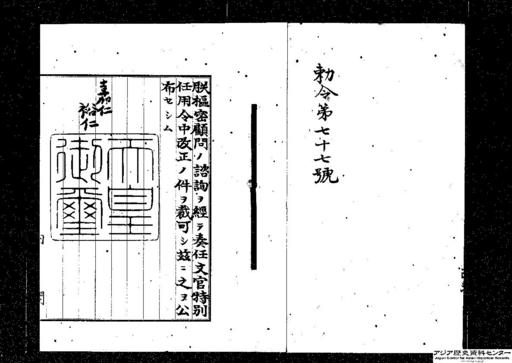 勅令第七十七號
朕樞密顧問ノ諮詢ヲ經テ奏任文官特別
任用令中改正ノ件ヲ裁可シ茲ニ之ヲ公
布セシム
嘉仁
裕仁
天皇
御璽
内閣
アジア歴史資料センター
Japan Center for Asian Historical Records